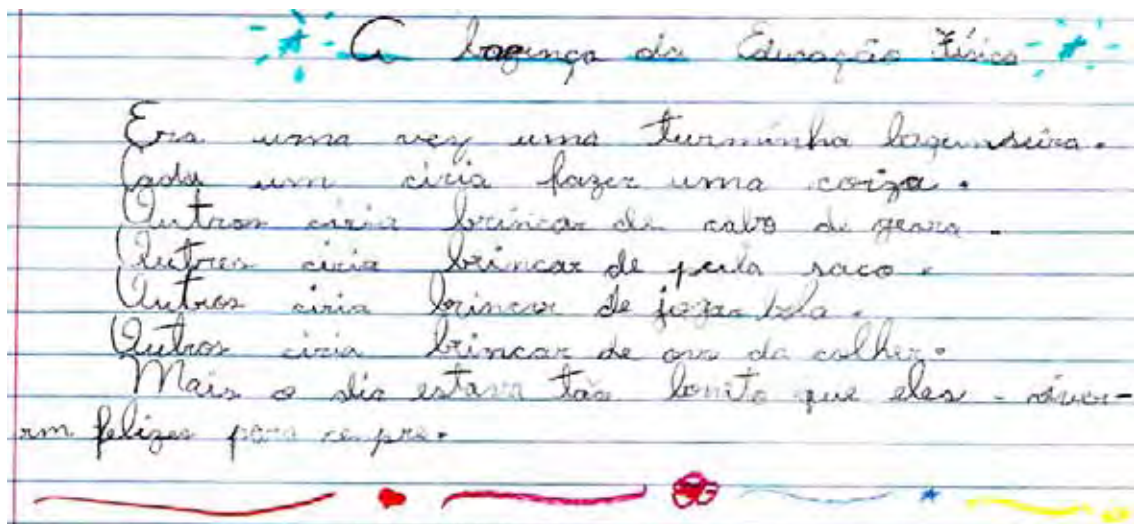 A bagunça da Educação Física
Era uma vez uma turminha bagunseira.
Cada um ciria fazer uma coriza.
Outros ciria brincar de cabo de geara.
Outros ciria brincar de pula saco.
Outros ciria brincar de jogar bola.
Outros ciria brincar de ovo da colher.
Mais o dia estava tão bonito que eles viver-
am felizes para cempre.